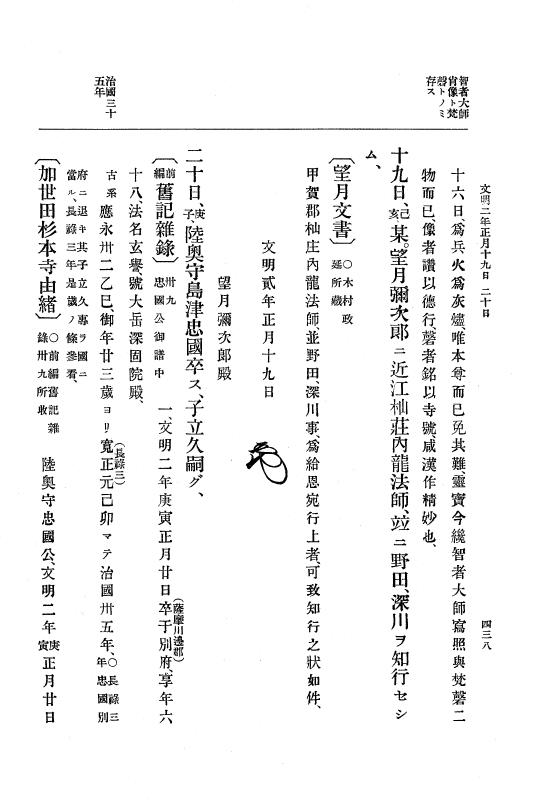 文明二年正月十九日 二十日
四三八
智者大師
肖像ト梵
磬トノミ
存ス
治國三十
五年
十六日、爲兵火爲灰燼、唯本尊而已免其難、靈寶今纔智者大師寫照與梵磬二
物而已、像者讚以德行、磬者銘以寺號、咸漢作精妙也、
十九日、己亥、某。望月彌次郎ニ近江杣莊內龍法師、竝ニ野田、深川ヲ知行セシ
ム、
〔望月文書〕 ○木村政延所藏
甲賀郡杣庄內龍法師、並野田、深川事、爲給恩宛行上者、可致知行之狀如件、
文明貳年正月十九日
望月彌次郎殿
二十日、庚子、陸奧守島津忠國卒ス、子立久嗣グ、
〔前編舊記雜錄〕 卅九 忠國公御譜中 一、文明二年庚寅正月廿日卒于別府、(薩摩川邊郡)享年六
十八、法名玄譽、號大岳深固院殿、
古系 應永卅二乙巳、御年廿三歲ヨリ寬正元己卯マテ治國卅五年、(長祿三)○長祿三年忠國別
府ニ退キ其子立久專ラ國ニ
當ル、長祿三年是歲ノ條參看、
〔加世田杉本寺由緒〕 ○前編舊記雜錄卅九所收 陸奧守忠國公、文明二年庚寅正月廿日